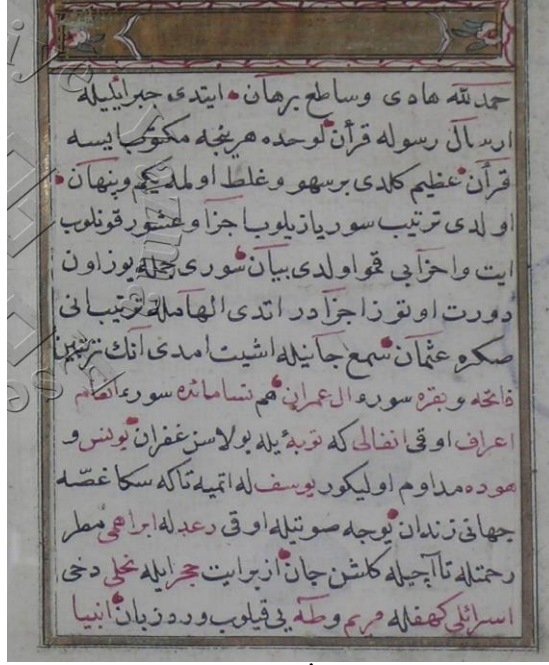 حمد لله هادی وساطع برهان ایتدی جبرائیلیله
ارسال رسوله قرآن لوحده هر نیجه مکتوب ایسه
قرآن عظیم کلدی بر سهو و غلط اولمه یکم و پنهان
اولدی ترتیب سور یازیلوب اجزا و عشور قونلوب
ایت واحزابی قمو اولدی بیان سوری جمله یوز اون
دورت اوتوز اجزادر اتدی الهامله ترتیبانی
صکره عثمان سمع جانیله اشیت امدی آنك ترتیبن
فاتحه و بقره سوره ال عمران هم نسا مائده سوره انعام
اعراف اوقی انفالی که توبه ئیله بولاسن غفران یونس و
هوده مداوم اولیکور یوسف له اتمیه تاکه سکا غصّه
جهانی زندان یوجه صوتیله اوقی رعد له ابراهیمی مطر
رحمتله تا آچیله کلشن جان از برایت حجر ایله نحلی دخی
اسرائلی کهفله مریم و طه یی قیلوب ورد زبان انبیا